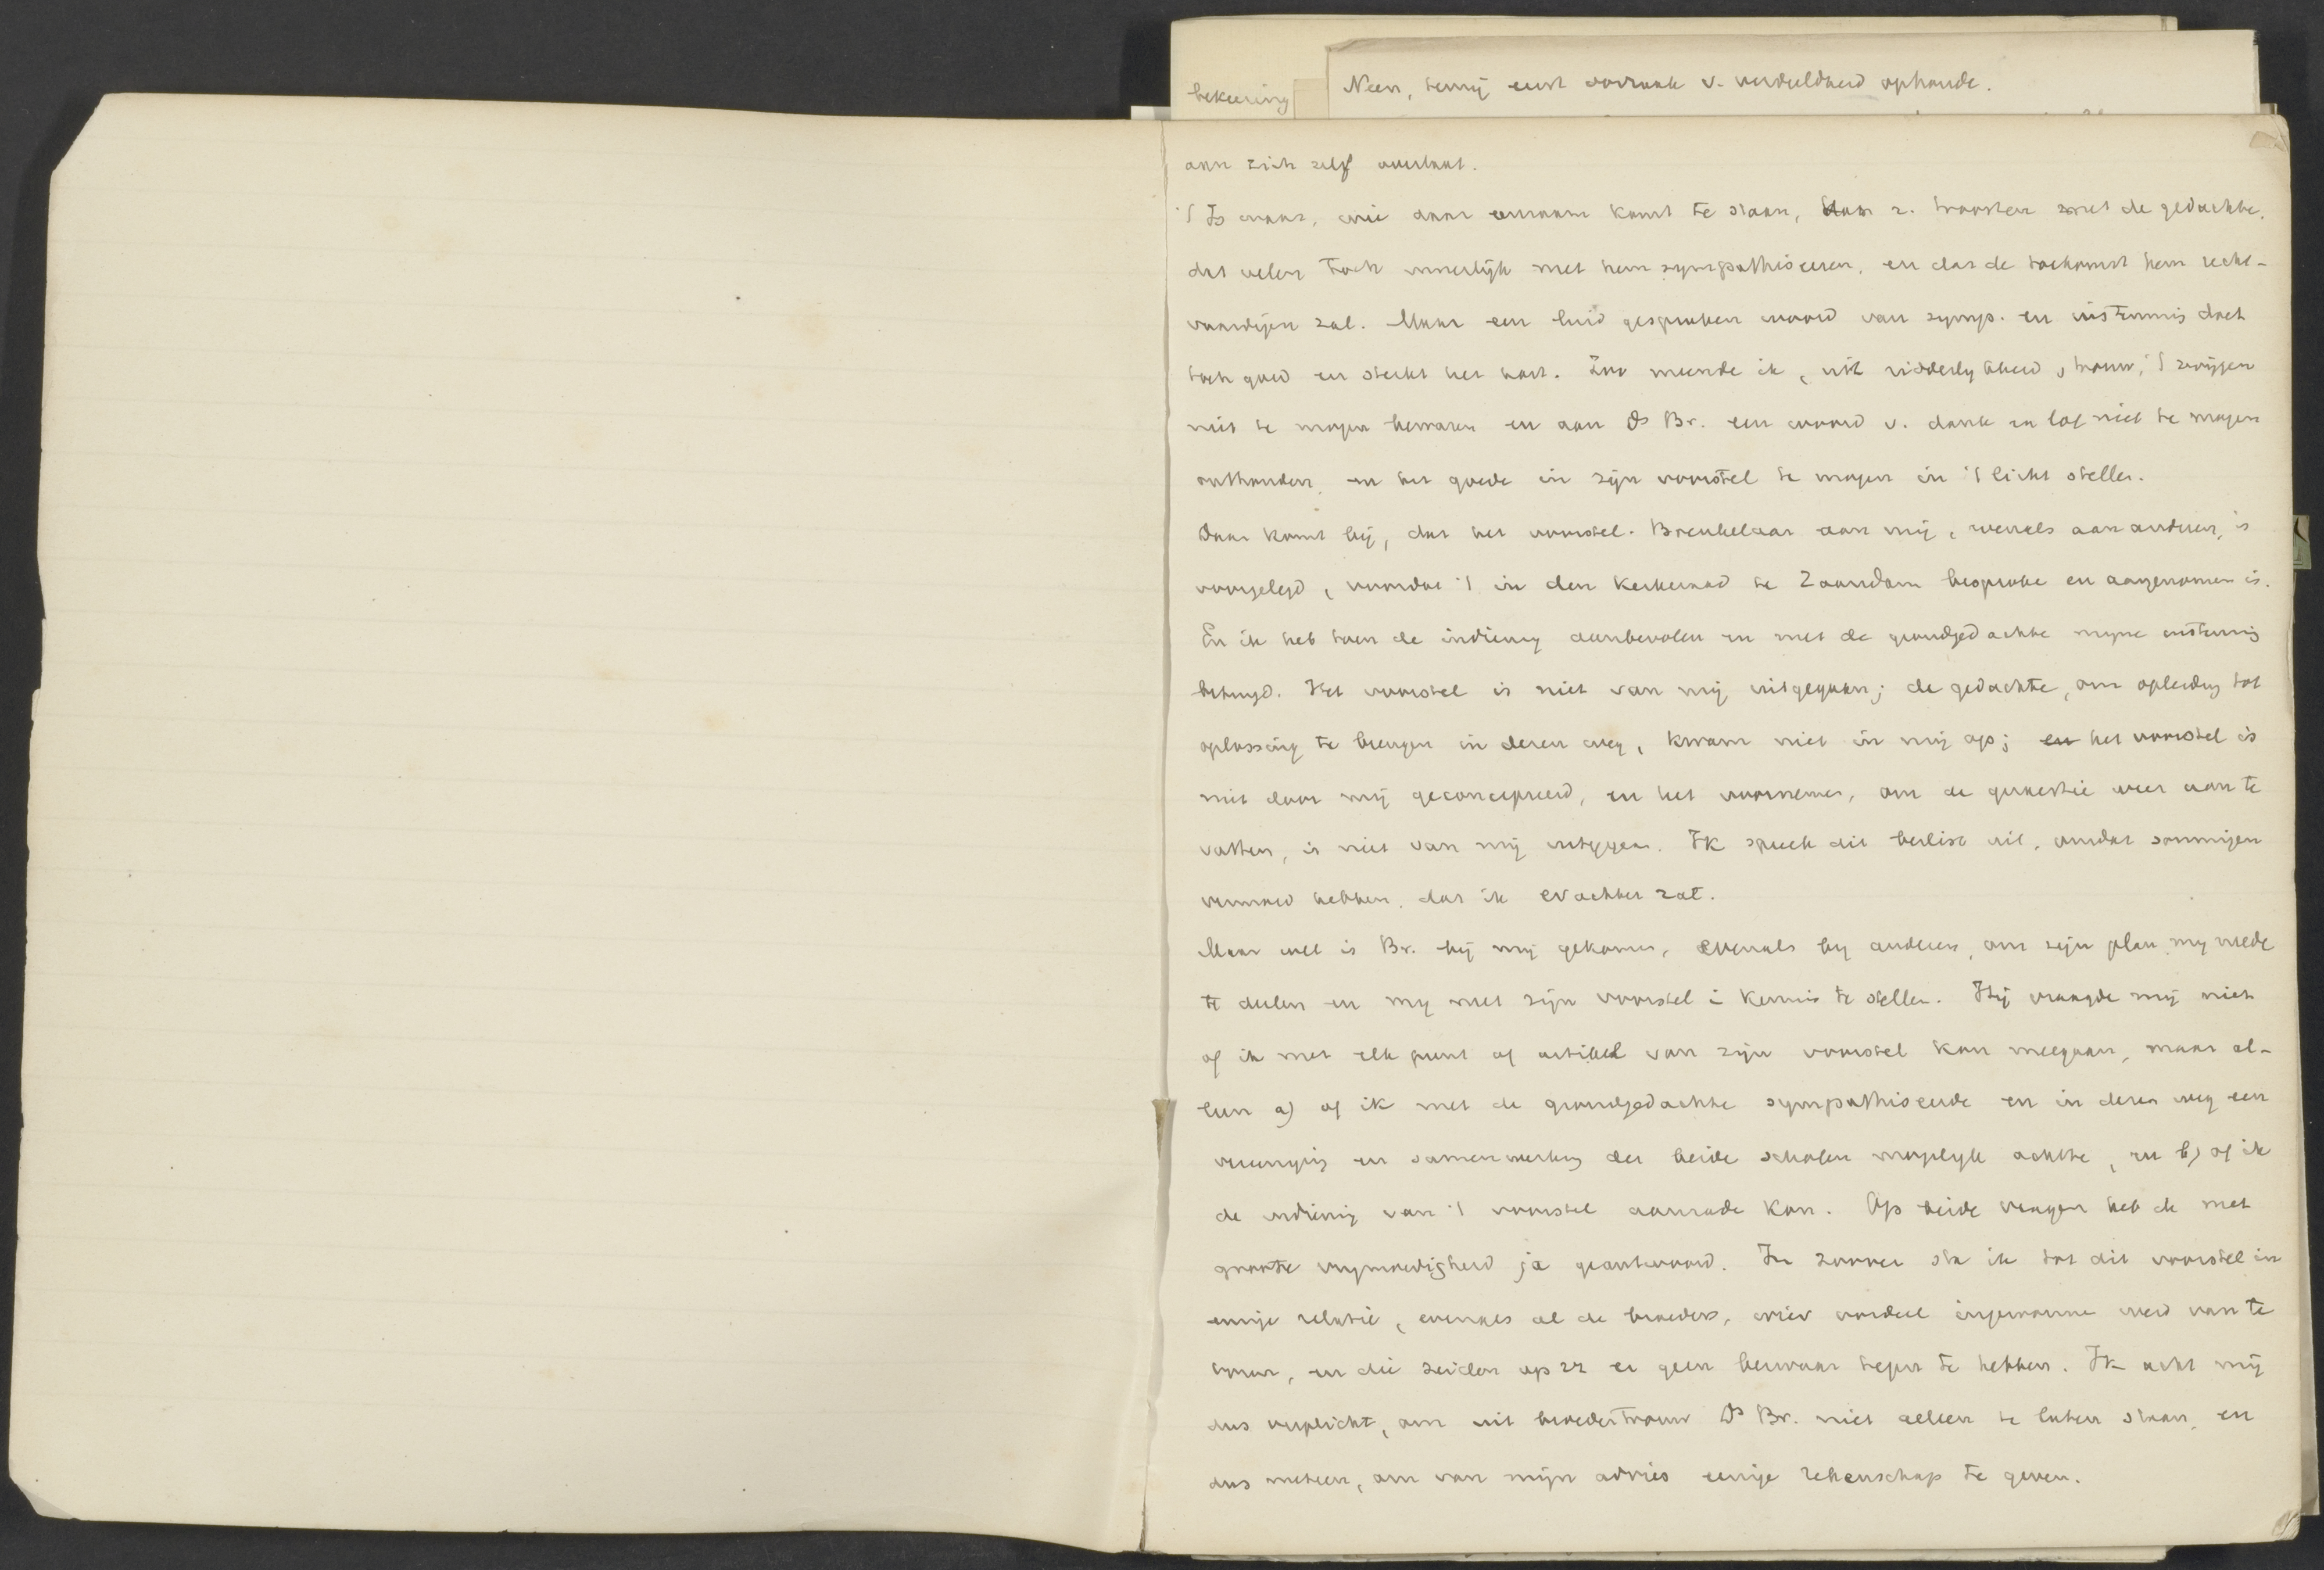 bekeering
Neen, tenzij eerst oorzaak v. verdeeldheid ophoude.
aan zich zelf overlaat.
't Is waar, wie daar eenzaam komt te staan, kan z. troosten met de gedachte,
dat velen toch innerlijk met hem sympathiseeren, en dat de toekomst hem recht-
vaardigen zal. Maar een luid gesproken woord van symp. en instemmig doet
toch goed en sterkt het hart. Zoo meende ik, uit ridderlykheid, trouw, 't zwijgen
niet te mogen bewaren en aan Ds Br. een woord v. dank en lof niet te mogen
onthouden, en het goede in zijn voorstel te mogen in 't licht stellen.
Daar komt bij, dat het voorstel-Breukelaar aan mij, evenals aan anderen, is
voorgelegd, voordat 't in den Kerkeraad te Zaandam besproke en aangenomen is.
En ik heb toen de indiening aanbevolen en met de grondgedachte myne instemmig
betuygd. Het voorstel is niet van mij uitgegaan; de gedachte, om opleiding tot
oplossing te brengen in dezen weg, kwam niet in mij op; en het voorstel is
niet door mij geconcipieerd, en het voornemen, om de quaestie weer aan te
vatten, is niet van mij uitgegaan. Ik spreek dit beslist uit, omdat sommigen
vermoed hebben, dat ik erachter zat.
Maar wel is Br. bij mij gekomen, evenals by anderen, om zijn plan my mede
te deelen en my met zijn voorstel i kennis te stellen. Hij vraagde mij niet
of ik met elk punt of artikel van zijn voorstel kon meegaan, maar al-
leen a) of ik met de grondgedachte sympathiseerde en in dezen weg een
vereenigig en samenwerking der beide scholen mogelyk achtte, en b) of ik
de indienig van 't voorstel aanrade kon. Op beide vragen heb ik met
groote vrymoedigheid ja geantwoord. In zoover sta ik tot dit voorstel in
eenige relatie, evenals al de broeders, wier oordeel ingewonne werd van te
voren, en die zeiden op zz er geen bezwaar tegen te hebben. Ik acht mij
dus verplicht, om uit broedertrouw Ds Br. niet alleen te laten staan, en
dus meteen, om van mijn advies eenige rekenschap te geven.